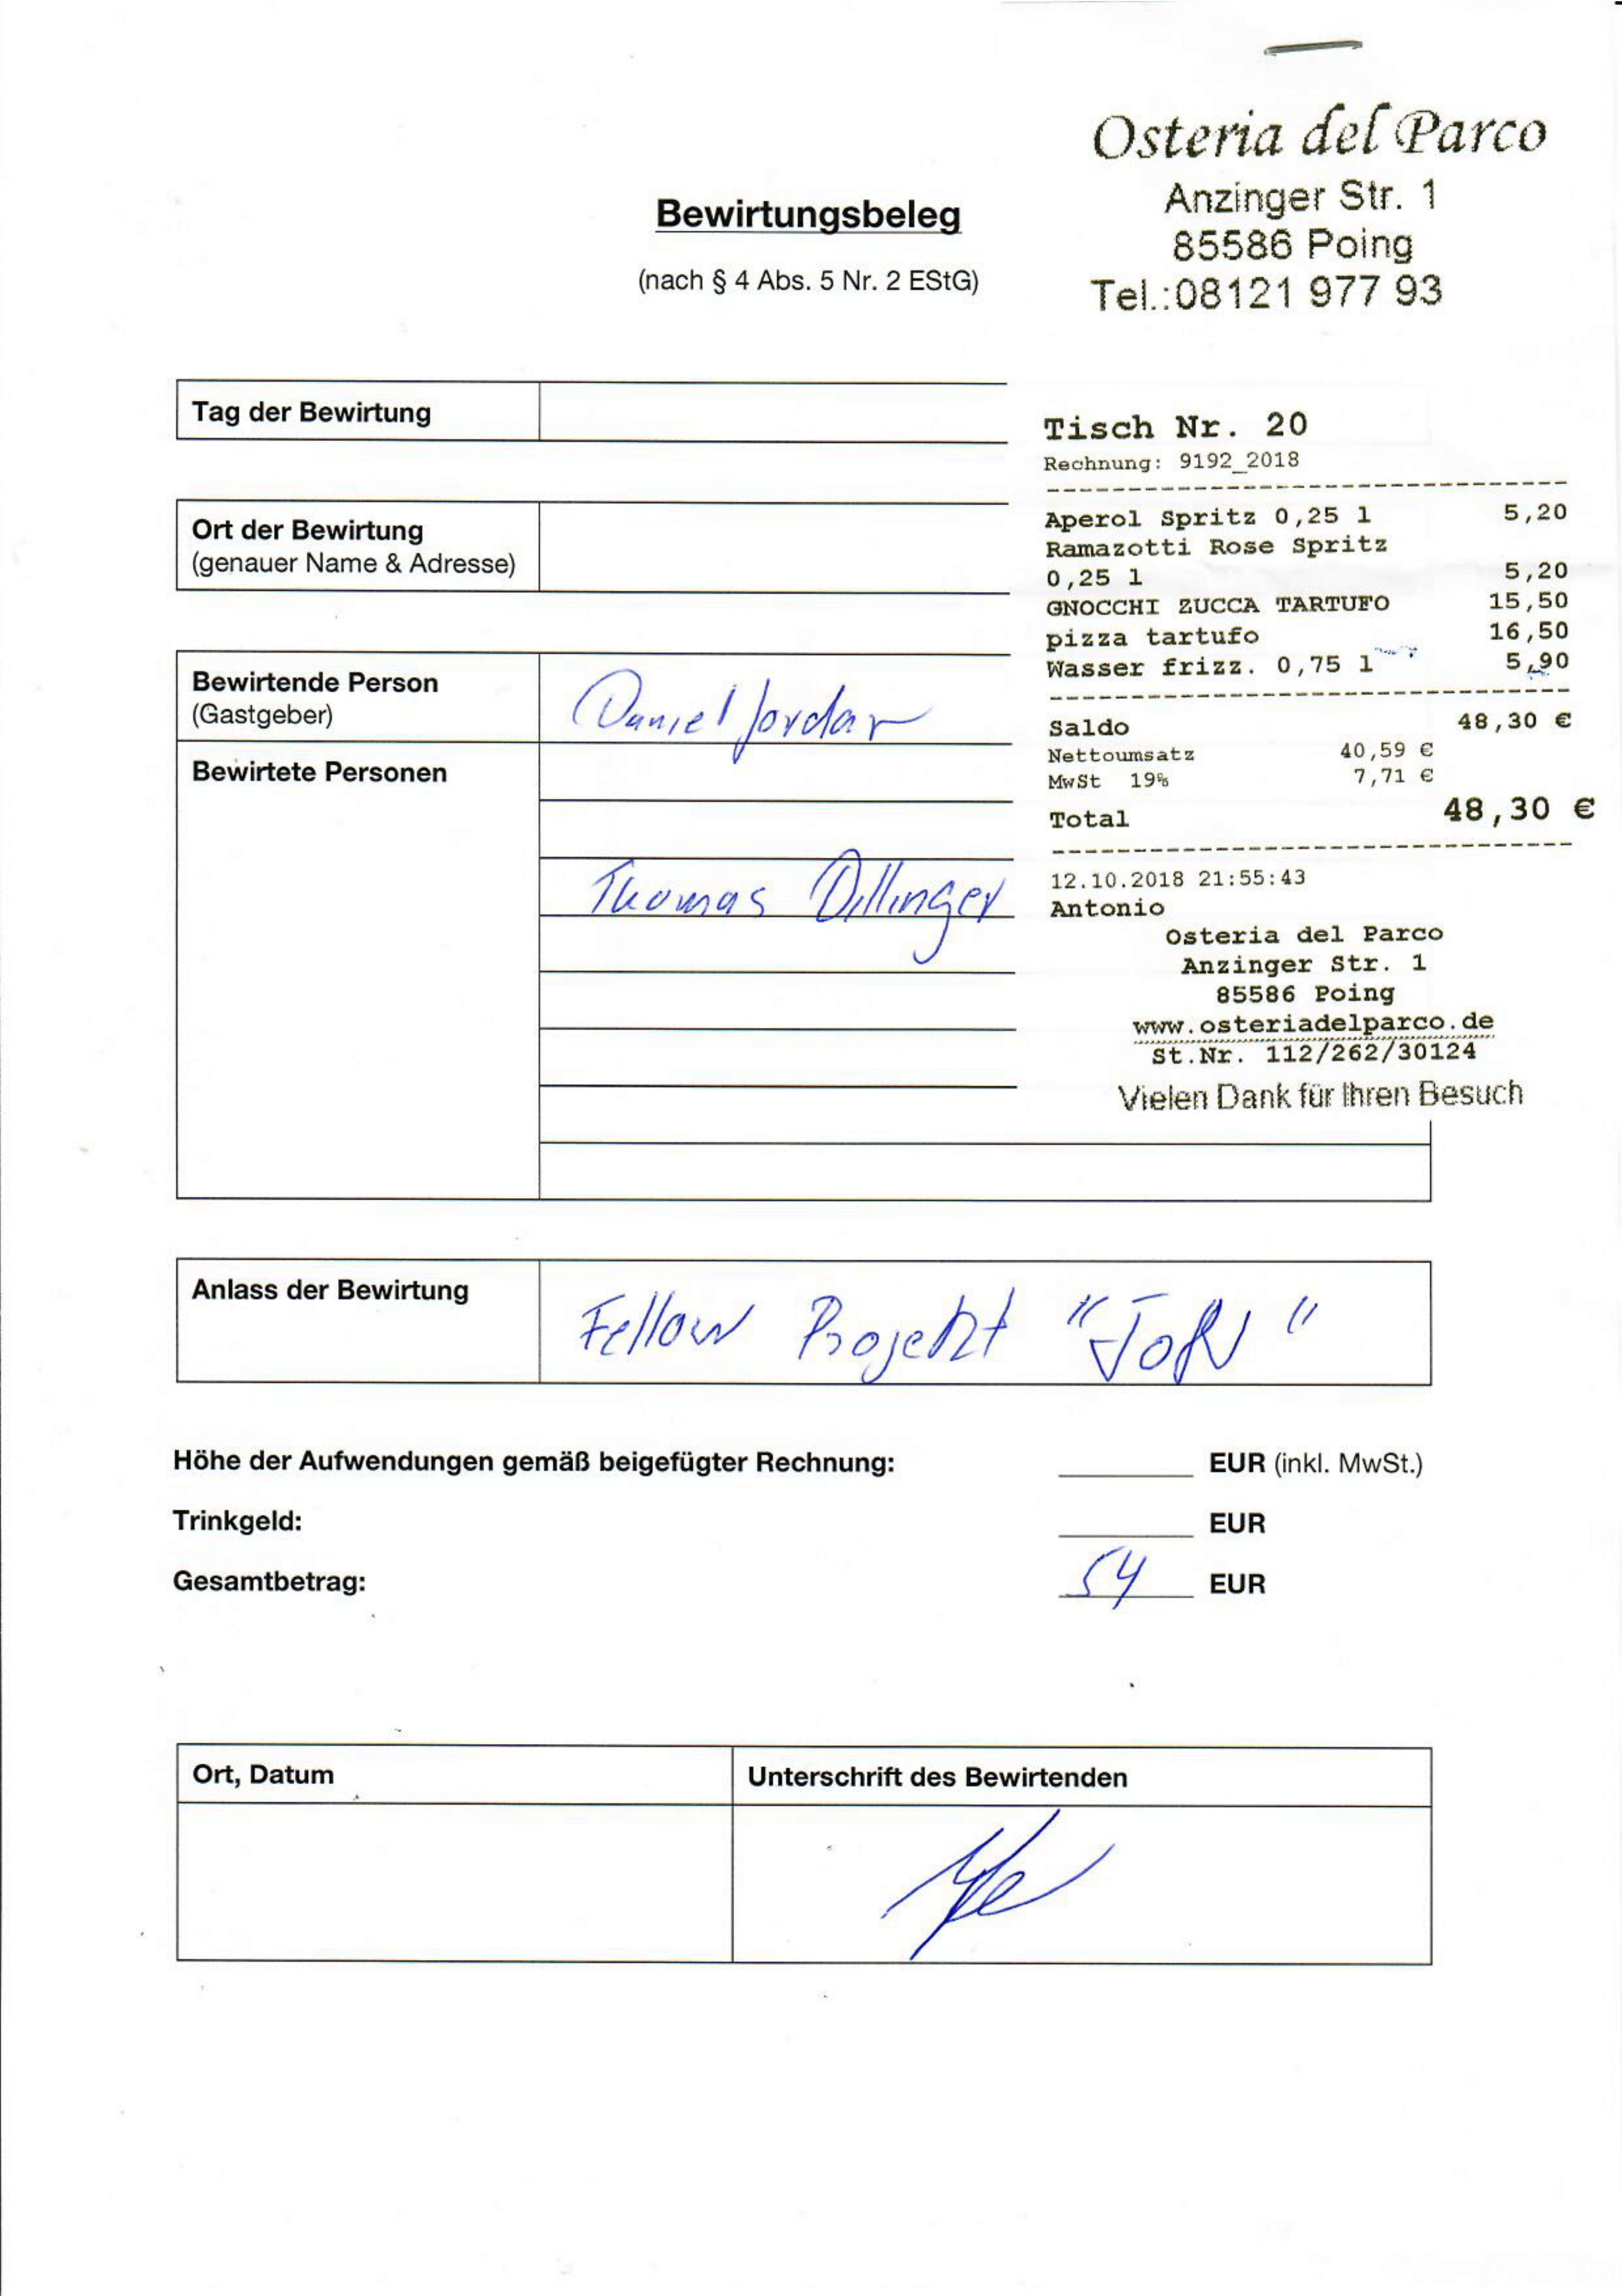 Osteria del Parco
Anzinger Str. 1
85586 Poing
Tel.:08121 977 93
Bewirtungsbeleg
(nach § 4 Abs. 5 Nr. 2 EStG)
Tag der Bewirtung
Ort der Bewirtung
(genauer Name & Adresse)
Bewirtende Person
(Gastgeber)
Daniel Jordan
Bewirtete Personen
Thomas Dillinger
Tisch Nr. 20
Rechnung: 9192_2018
Aperol Spritz 0,25 l 5,20
Ramazotti Rose Spritz
0,25 l 5,20
GNOCCHI ZUCCA TARTUFO 15,50
pizza tartufo 16,50
Wasser frizz. 0,75 l 5,90
Saldo 48,30 €
Nettoumsatz 40,59 €
MwSt 19% 7,71 €
Total 48,30 €
12.10.2018 21:55:43
Antonio
Osteria del Parco
Anzinger Str. 1
85586 Poing
www.osteriadelparco.de
St.Nr. 112/262/30124
Vielen Dank für Ihren Besuch
Anlass der Bewirtung
Fellow Projekt
Höhe der Aufwendungen gemäß beigefügter Rechnung: EUR (inkl. MwSt.)
Trinkgeld: EUR
Gesamtbetrag: 54 EUR
Ort, Datum
Unterschrift des Bewirtenden